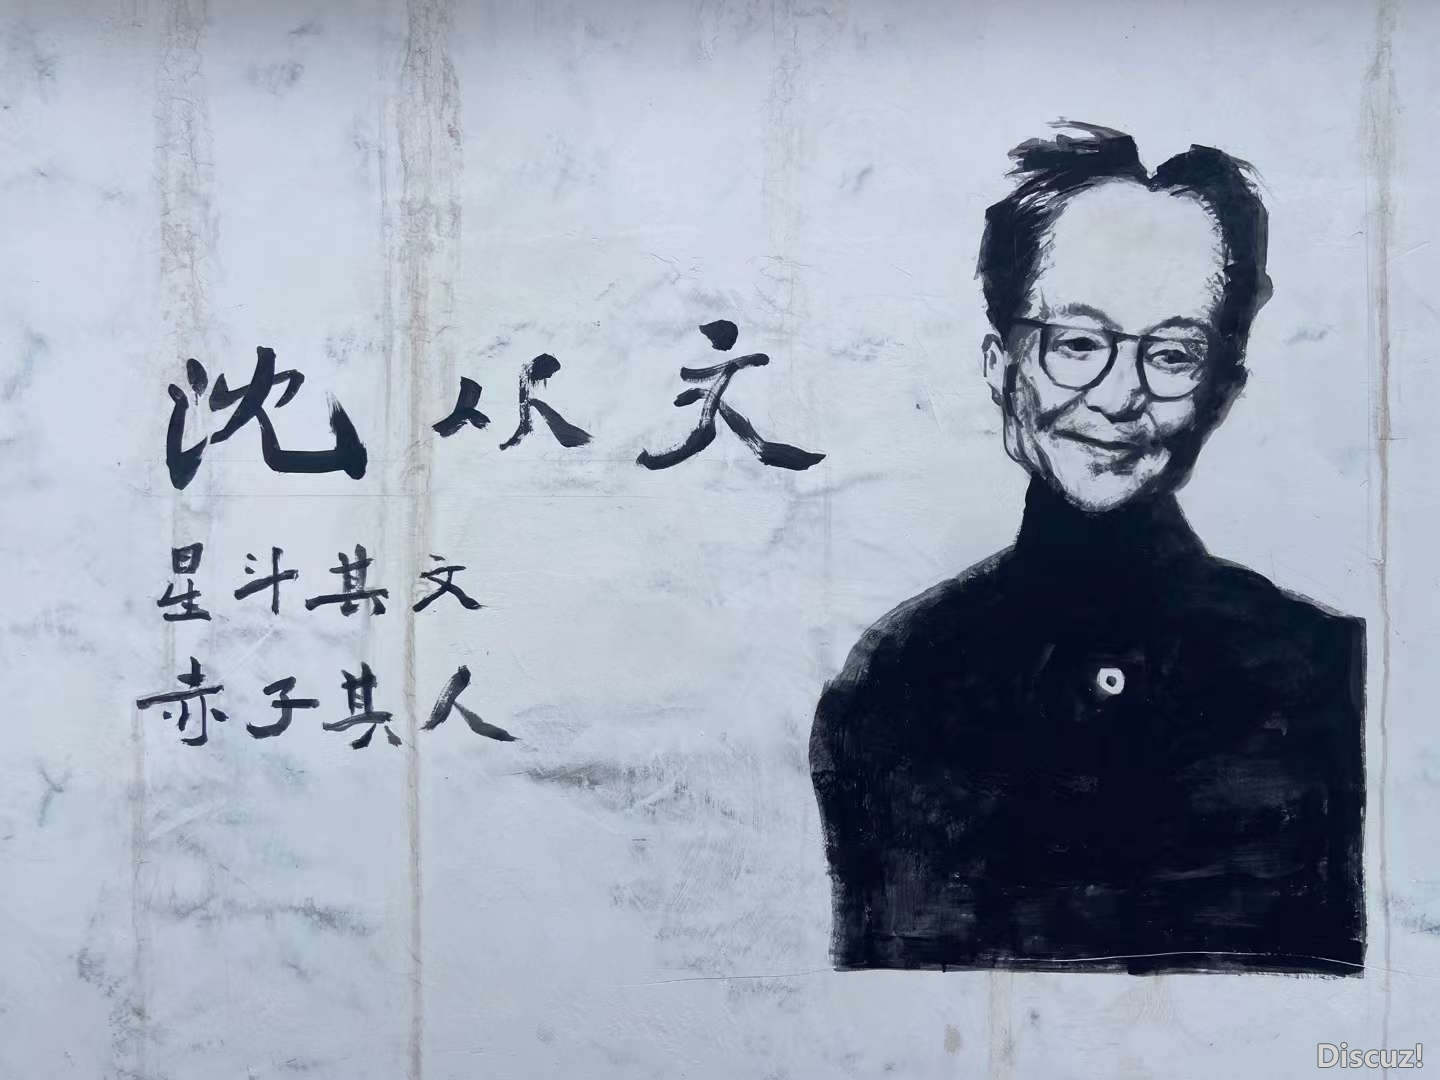 沈从文
星斗其文
赤子其人
Discuz!